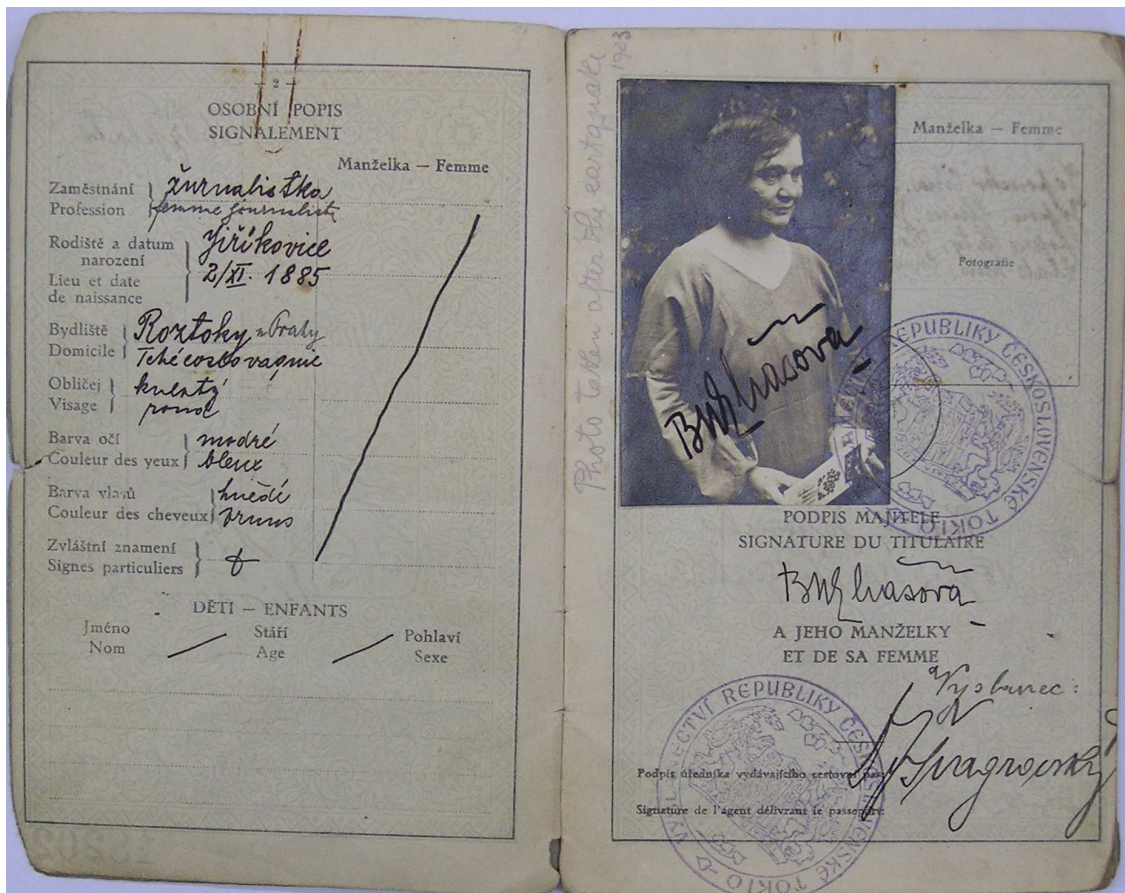 — 2 —
OSOBNÍ POPIS
SIGNALEMENT
Manželka — Femme
Zaměstnání
Profession
žurnalistka
femme journaliste
Rodiště a datum
narození
Lieu et date
de naissance
Jiříkovice
2/XI. 1885
Bydliště
Domicile
Roztoky u Prahy
Tchécoslovaquie
Obličej
Visage
kulatý
rond
Barva očí
Couleur des yeux
modré
bleux
Barva vlasů
Couleur des cheveux
hnědé
bruns
Zvláštní znamení
Signes particuliers
DĚTI — ENFANTS
Jméno
Nom
Stáří
Age
Pohlaví
Sexe
Photo taken after the eartquake
1923
Manželka — Femme
Fotografie
REPUBLIKY ČESKOSLOVENSKÉ TOKIO
PODPIS MAJITELE
SIGNATURE DU TITULAIRE
A JEHO MANŽELKY
ET DE SA FEMME
Vyslanec:
VYSLANECTVÍ REPUBLIKY ČESKOSLOVENSKÉ TOKIO
Podpis úředníka vydávajícího cestovní pas:
Signature de l'agent délivrant le passeport: